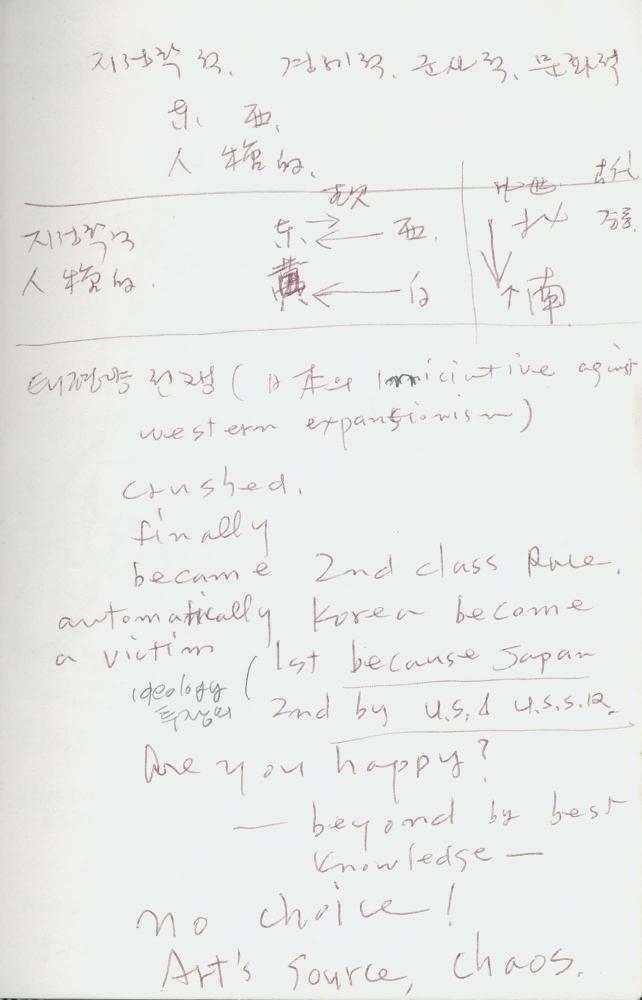 지정학적. 경제적. 군사적. 문화적
东. 西.
人種的.
지정학적 东. 西. 
人種的. 黄 白 南
태평양전쟁 (日本의 Iniciative aginst
western expansionism)
crushed.
finally
became 2nd class Race.
automatically Korea become
a victim 1st because Japan
ideology
투쟁의 2nd by U.S. & U.S.S.R.
Are you happy?
— beyond by best
knowledge —
no choice!
Art's source, chaos.